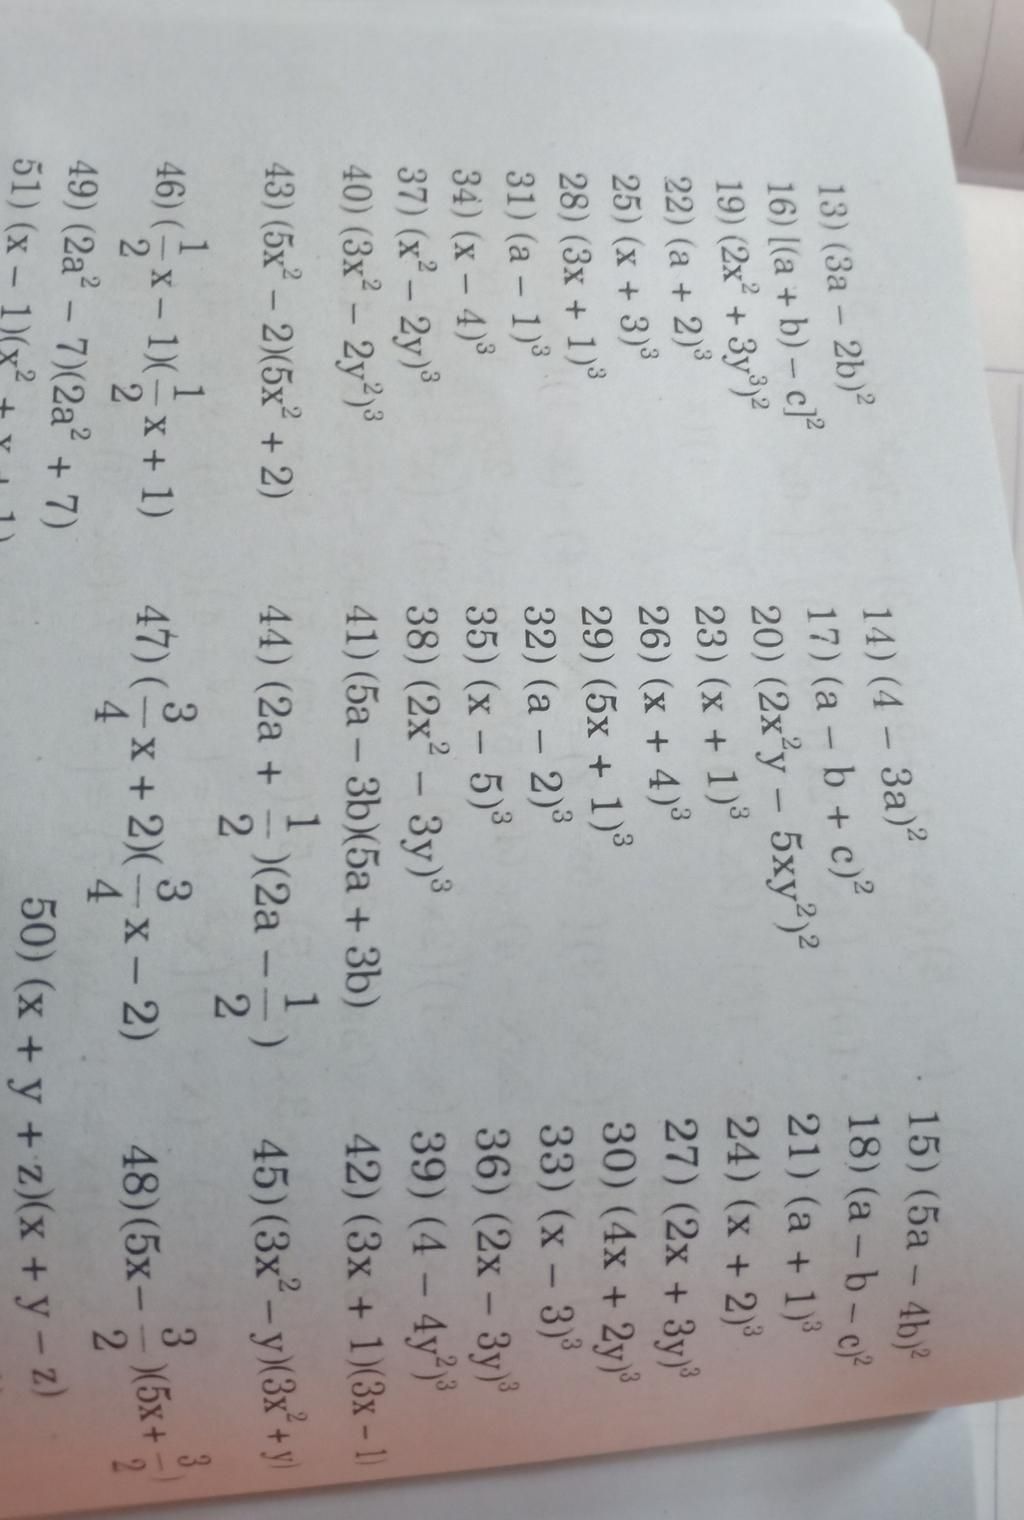 13) (3a – 2b)² 14) (4 – 3a)² 15) (5a – 4b)²
16) [(a + b) – c]² 17) (a – b + c)² 18) (a – b – c)²
19) (2x² + 3y³)² 20) (2x²y – 5xy²)² 21) (a + 1)³
22) (a + 2)³ 23) (x + 1)³ 24) (x + 2)³
25) (x + 3)³ 26) (x + 4)³ 27) (2x + 3y)³
28) (3x + 1)³ 29) (5x + 1)³ 30) (4x + 2y)³
31) (a – 1)³ 32) (a – 2)³ 33) (x – 3)³
34) (x – 4)³ 35) (x – 5)³ 36) (2x – 3y)³
37) (x² – 2y)³ 38) (2x² – 3y)³ 39) (4 – 4y²)³
40) (3x² – 2y²)³ 41) (5a – 3b)(5a + 3b) 42) (3x + 1)(3x – 1)
43) (5x² – 2)(5x² + 2) 44) (2a + 1/2)(2a – 1/2) 45) (3x² – y)(3x² + y)
46) (1/2x – 1)(1/2x + 1) 47) (3/4x + 2)(3/4x – 2) 48) (5x – 3/2)(5x + 3/2)
49) (2a² – 7)(2a² + 7) 50) (x + y + z)(x + y – z)
51) (x – 1)(x² + x + 1)